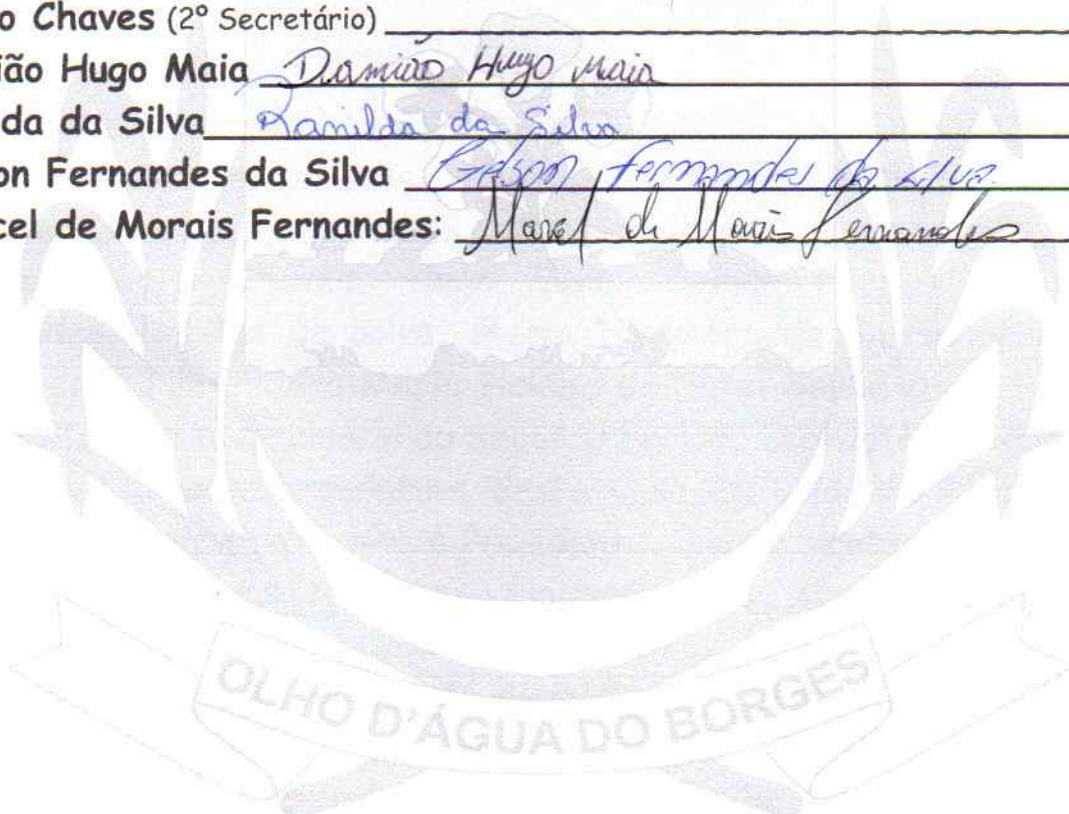 o Chaves (2º Secretário)
ião Hugo Maia Damião Hugo Maia
da da Silva Ranilda da Silva
on Fernandes da Silva Gelson Fernandes da Silva
cel de Morais Fernandes: Marcel de Morais Fernandes
OLHO D'ÁGUA DO BORGES